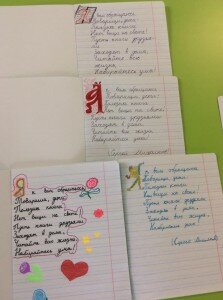 Я к вам обращаюсь,
Товарищи, дети:
Полезнее книги
Нет вещи на свете!
Пусть книги друзьями
Заходят в дома,
Читайте всю
жизнь,
Набирайтесь ума!
Я к вам обращаюсь,
Товарищи, дети:
Полезнее книги
Нет вещи на свете!
Пусть книги друзьями
Заходят в дома,
Читайте всю жизнь,
Набирайтесь ума!
Сергей Михалков
Я к вам обращаюсь,
Товарищи, дети:
Полезнее книги
Нет вещи на свете!
Пусть книги друзьями
Заходят в дома,
Читайте всю жизнь,
Набирайтесь ума!
Я к вам обращаюсь,
Товарищи, дети:
Полезнее книги
Нет вещи на свете!
Пусть книги друзьями
Заходят в дома,
Читайте всю жизнь,
Набирайтесь ума!
(Сергей Михалков)